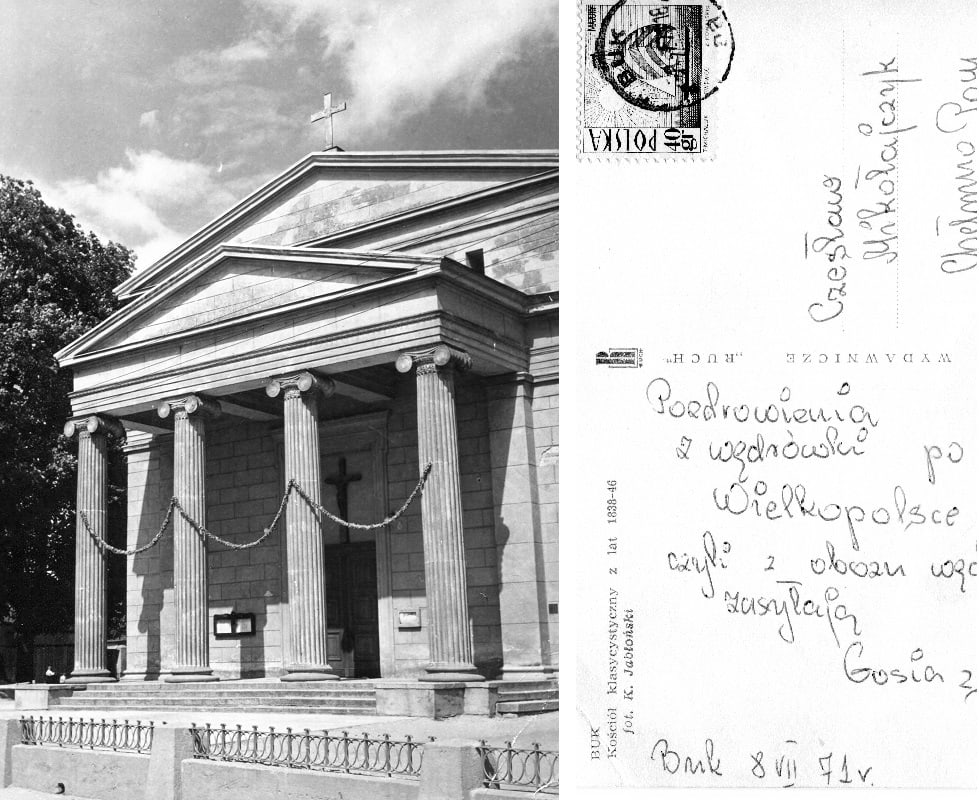 POLSKA 40 gr
BUK
Czesław
Mikołajczyk
Chełmno Pom
WYDAWNICZE „RUCH"
RUCH
Pozdrowienia
z wędrówki po
Wielkopolsce
czyli z obozu węd
zasyłają
Gosia z
Buk 8 VII 71 r.
BUK
Kościół klasycystyczny z lat 1838-46
fot. K. Jabłoński